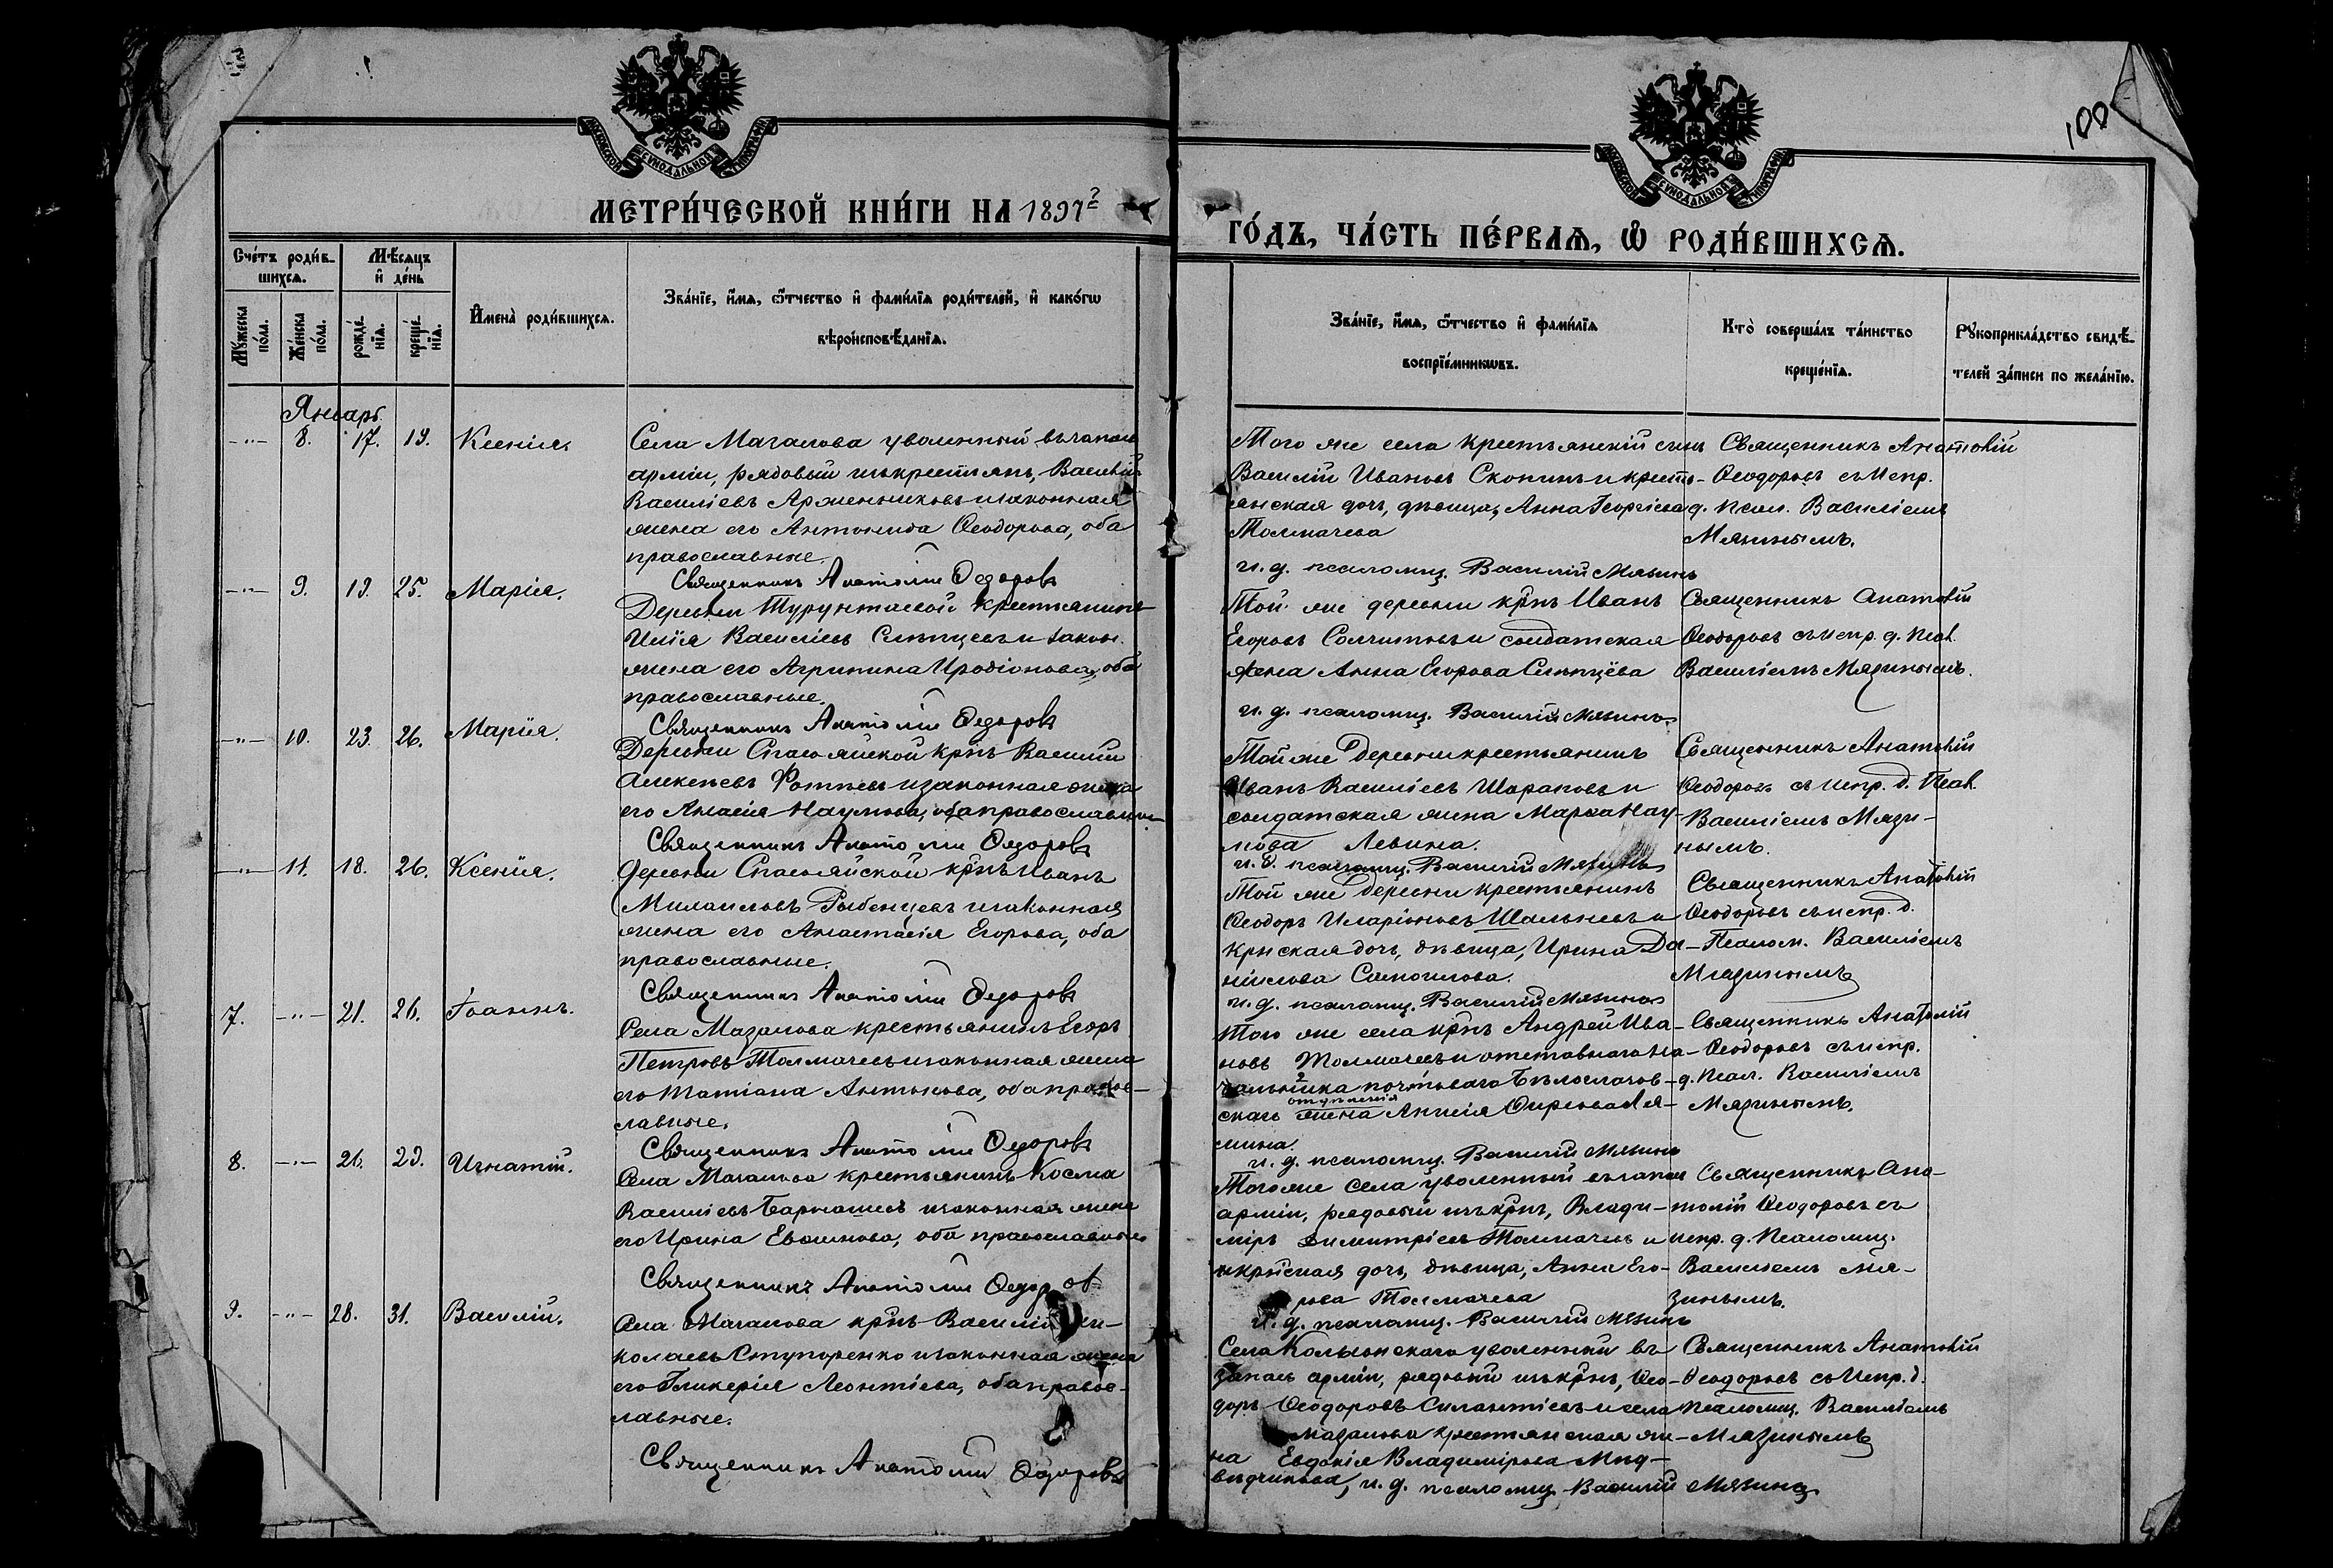 100
МОСКОВСКОЙ СѴНОДАЛЬНОЙ ТИПОГРАФІИ
МОСКОВСКОЙ СѴНОДАЛЬНОЙ ТИПОГРАФІИ
МЕТРИ́ЧЕСКОЙ КНИ́ГИ НА 1897 г
ГО́ДЪ, ЧА́СТЬ ПЕ́РВАѦ, Ѽ РОДИ́ВШИХСѦ.
Сче́тъ роди́в-
шихсѧ.
Мѣ́сѧцъ
и҆ де́нь
Мꙋ́жеска по́ла.
Же́нска по́ла.
рожде́-нїѧ.
креще́-нїѧ.
И҆мена̀ роди́вшихсѧ.
Зва́нїе, и҆́мѧ, ѻ҆́тчество и҆ фамі́лїѧ роди́телей, и҆ како́гѡ
вѣроисповѣ́данїѧ.
Зва́нїе, и҆́мѧ, ѻ҆́тчество и҆ фамі́лїѧ
воспрїе́мникѡвъ.
Кто̀ соверша́лъ та́инство
креще́нїѧ.
Рꙋкоприкла́дство свидѣ́-
телей за́писи по жела́нїю.
Январь.
-"- 8. 17. 19. Ксенія.
Села Мазанова уволенный въ запасъ
арміи, рядовый изъ крестьянъ, Василій
Василіевъ и законная
жена его Антонида Ѳеодорова, оба
православные.
Священникъ Анатолій Ѳедоровъ
Того же села крестьянскій сынъ
Василій Ивановъ Скопинъ и кресть-
янская дочь, дѣвица, Анна Георгіева
Толмачева
и. д. псаломщ. Василій Мязинъ
Священникъ Анатолій
Ѳеодоровъ съ испр.
д. псал. Василіемъ
Мязинымъ.
-"- 9. 19. 25. Марія.
Деревни Турунтаевой крестьянинъ
Илія Василіевъ Слѣпцевъ и закон.
жена его Агрипина Иродіонова, оба
православные.
Священникъ Анатолій Ѳедоровъ
Той же деревни крнъ Иванъ
Егоровъ и солдатская
жена Анна Егорова Слѣпцёва
и. д. псаломщ. Василій Мязинъ
Священникъ Анатолій
Ѳеодоровъ съ испр. д. псал.
Василіемъ Мязинымъ.
-"- 10. 23. 26. Марія.
Деревни крнъ Василій
Алексѣевъ и законная жена
его Анасія Наумова, оба православные
Священникъ Анатолій Ѳедоровъ
Той же деревни крестьянинъ
Иванъ Василіевъ Шараповъ и
солдатская жена Марѳа Нау-
мова Левина.
и. д. псаломщ. Василій Мязинъ
Священникъ Анатолій
Ѳеодоровъ съ испр. д. псал.
Василіемъ Мязи-
нымъ.
-"- 11. 18. 26. Ксенія.
Деревни крнъ Иванъ
Михаиловъ Рыбенцевъ и законная
жена его Анастасія Егорова, оба
православные.
Священникъ Анатолій Ѳедоровъ
Той же деревни крестьянинъ
Ѳеодоръ Иларіоновъ Шальневъ и
крнская дочь, дѣвица, Ирина Да-
ніилова Самоилова.
и. д. псаломщ. Василій Мязинъ
Священникъ Анатолій
Ѳеодоровъ съ испр. д.
Псалом. Василіемъ
Мязинымъ
7. -"- 21. 26. Іоаннъ.
Села Мазанова крестьянинъ Егоръ
Петровъ Толмачевъ и законная жена
его Татіана Антонова, оба право-
славные.
Священникъ Анатолій Ѳедоровъ
Того же села крнъ Андрей Ива-
новъ Толмачевъ и отставнаго на-
чальника почтоваго Бѣлоглазов-
отдѣленія
скаго жена Анисія
мина.
и. д. псаломщ. Василій Мязинъ
Священникъ Анатолій
Ѳеодоровъ съ испр.
д. псал. Василіемъ
Мязинымъ.
8. -"- 26. 29. Игнатій.
Села Мазанова крестьянинъ Косма
Василіевъ Барнашевъ и законная жена
его Ирина Евфимова, оба православные
Священникъ Анатолій Ѳедоровъ
Того же села уволенный въ запасъ
арміи, рядовый изъ крнъ, Влади-
міръ Димитріевъ Толмачевъ и
крнская дочь, дѣвица, Анна Его-
рова Толмачева
и. д. псаломщ. Василій Мязинъ
Священникъ Ана-
толій Ѳеодоровъ съ
испр. д. псаломщ.
Василіемъ Мя-
зинымъ.
9. -"- 28. 31. Василій.
Села Мазанова крнъ Василій Ни-
колаевъ Ступоренко и законная жена
его Гликерія Леонтіева, оба право-
славные.
Священникъ Анатолій Ѳедоровъ
Села Кольонскаго уволенный въ
запасъ арміи, рядовый изъ крнъ, Ѳео-
доръ Ѳеодоровъ Силантіевъ и села
Мазанова крестьянская же-
на Евдокія Владимірова Мед-
вѣдчикова, и. д. псаломщ. Василій Мязинъ
Священникъ Анатолій
Ѳеодоровъ съ испр. д.
псаломщ. Василіемъ
Мязинымъ